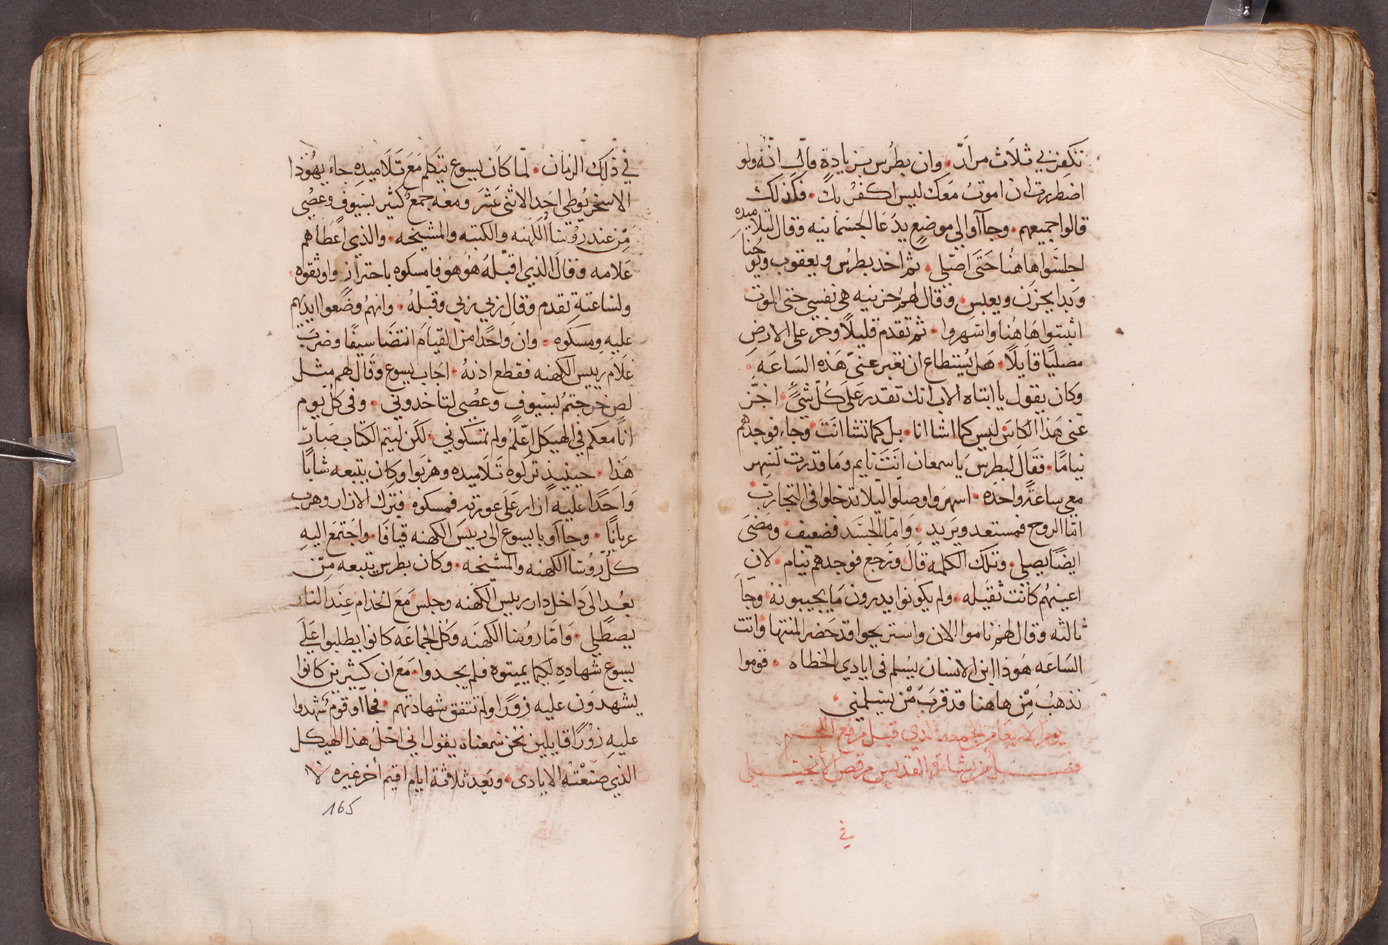 تكفر بي ثلاث مرار • وان بطرس بزيادة قال انه ولو
اضطررت ان اموت معك ليس اكفر بك • فكذلك
قالوا جميعهم • وجآاوا الي موضع يدعا الجسمانيه وقال لتلاميذه
اجلسوا هاهنا حتى اصلي • ثم اخد بطرس ويعقوب ويوحنا
وبدا يحزن ويعبس • وقال لهم حزينه هي نفسي حتى الموت
اثبتوا هاهنا واسهروا • ثم تقدم قليلاً وخر على الارض
مصليا قايلا • هل يستطاع ان تعبر عني هذه الساعه
وكان يقول يا ابتاه الاب انك تقدر على كل شي • اجز
عني هذا الكاس ليس كما اشا انا • بل كما تشا انت • وجاء فوجدهم
نياما • فقال لبطرس يا سمعان انت نايم وما قدرت تسهر
معي ساعة واحده • اسهروا وصلوا ليلا تدخلوا في التجارب
اما الروح فمستعد ويريد • واما الجسد فضعيف • ومضى
ايضا يصلي • وتلك الكلمه قال • ورجع فوجدهم نيام • لان
اعينهم كانت ثقيله • ولم يكونوا يدرون ما يجيبونه • وجا
ثالثه وقال لهم ناموا الان واستريحوا قد حضر المنتها واتت
الساعه هودا ابن الانسان يسلم في ايادي الخطاه • قوموا
نذهب من هاهنا قد قرب من يسلمني •
يوم الاربعا من الجمعه الذي قبل مرفع اللحم
فصل من بشارة القديس مرقص الانجيلي
في
في ذلك الزمان • لما كان يسوع يتكلم مع تلاميذه جاء يهوذا
الاسخريوطي احد الاثني عشر ومعه جمع كثير بسيوف وعصي
من عند روسا الكهنه والكتبه والمشيخه • والذي اعطاهم
علامه وقال الذي اقبله هو هو فامسكوه باحتراز واوثقوه
ولساعته تقدم وقال ربي ربي وقبله • وانهم وضعوا ايديهم
عليه ومسكوه • وان واحدا من القيام انتضا سيفا وضرب
غلام رييس الكهنه فقطع اذنه • اجاب يسوع وقال لهم مثل
لص خرجتم بسيوف وعصي لتاخدوني • وفي كل يوم
انا معكم في الهيكل اعلم ولم تمسكوني • لكن ليتم الكتاب صار
هذا • حينيذ تركوه تلاميده وهربوا وكان يتبعه شابا
واحدا عليه ازار على عورته فمسكوه • فترك الازار وهرب
عريانا • وجآاوا بيسوع الى رييس الكهنه قيافا • واجتمع اليه
كل روسا الكهنه والمشيخه • وكان بطرس يتبعه من
بعد الى داخل دار رييس الكهنه وجلس مع الخدام عند النار
يصطلي • واما روسا الكهنه وكل الجماعه كانوا يطلبوا على
يسوع شهاده لكيما يميتوه فلم يجدوا • مع ان كثيرين كانوا
يشهدون عليه زورا ولم تتفق شهادتهم • فجآاو قوم شهدوا
عليه زورا قايلين نحن سمعناه يقول اني احل هذا الهيكل
الذي صنعته الايادي • وبعد ثلاثة ايام اقيم اخر غيره لا
165